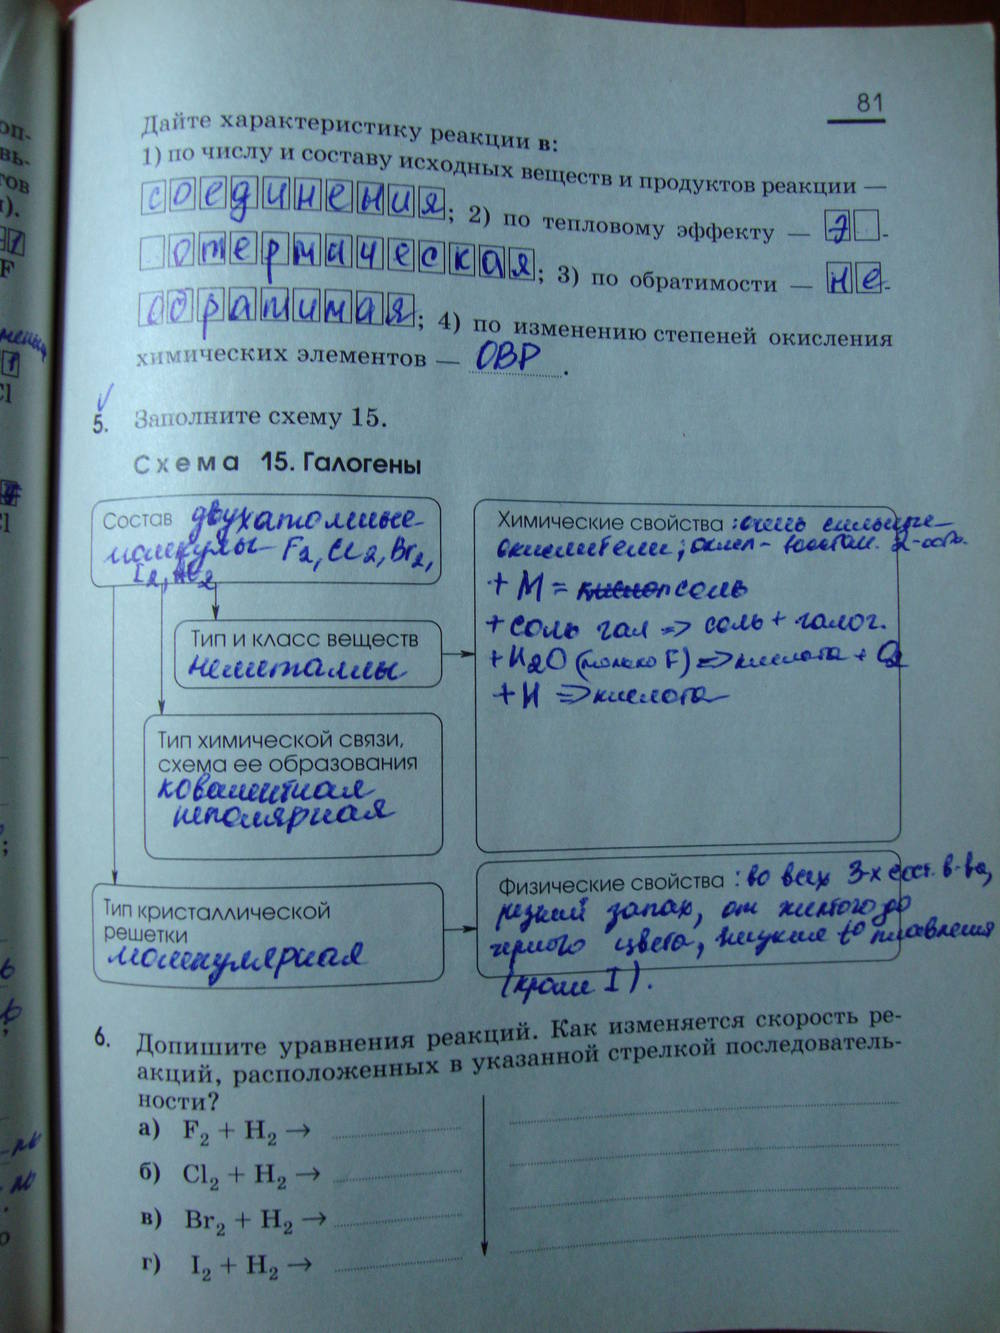 81
Дайте характеристику реакции в:
1) по числу и составу исходных веществ и продуктов реакции —
соединения; 2) по тепловому эффекту — э -
отермическая; 3) по обратимости — не-
обратимая; 4) по изменению степеней окисления
химических элементов — ОВР.
5. Заполните схему 15.
Схема 15. Галогены
Состав двухатомные
молекулы – F2, Cl2, Br2,
I2, At2
Тип и класс веществ
неметаллы
Тип химической связи,
схема ее образования
ковалентная
неполярная
Тип кристаллической
решетки
молекулярная
Химические свойства : очень сильные
окислители; окисл – восстан.
+ М = соль
+ соль гал => соль + галог.
+ H2O (только F) => кислота + O2
+ H => кислота
Физические свойства : во всех 3-х сост. в-ва,
резкий запах, от желтого до
черного цвета, низкие t° плавления
(кроме I).
6. Допишите уравнения реакций. Как изменяется скорость ре-
акций, расположенных в указанной стрелкой последователь-
ности?
а) F2 + H2 →
б) Cl2 + H2 →
в) Br2 + H2 →
г) I2 + H2 →